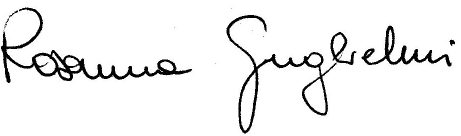 Rosanna Guglielmi